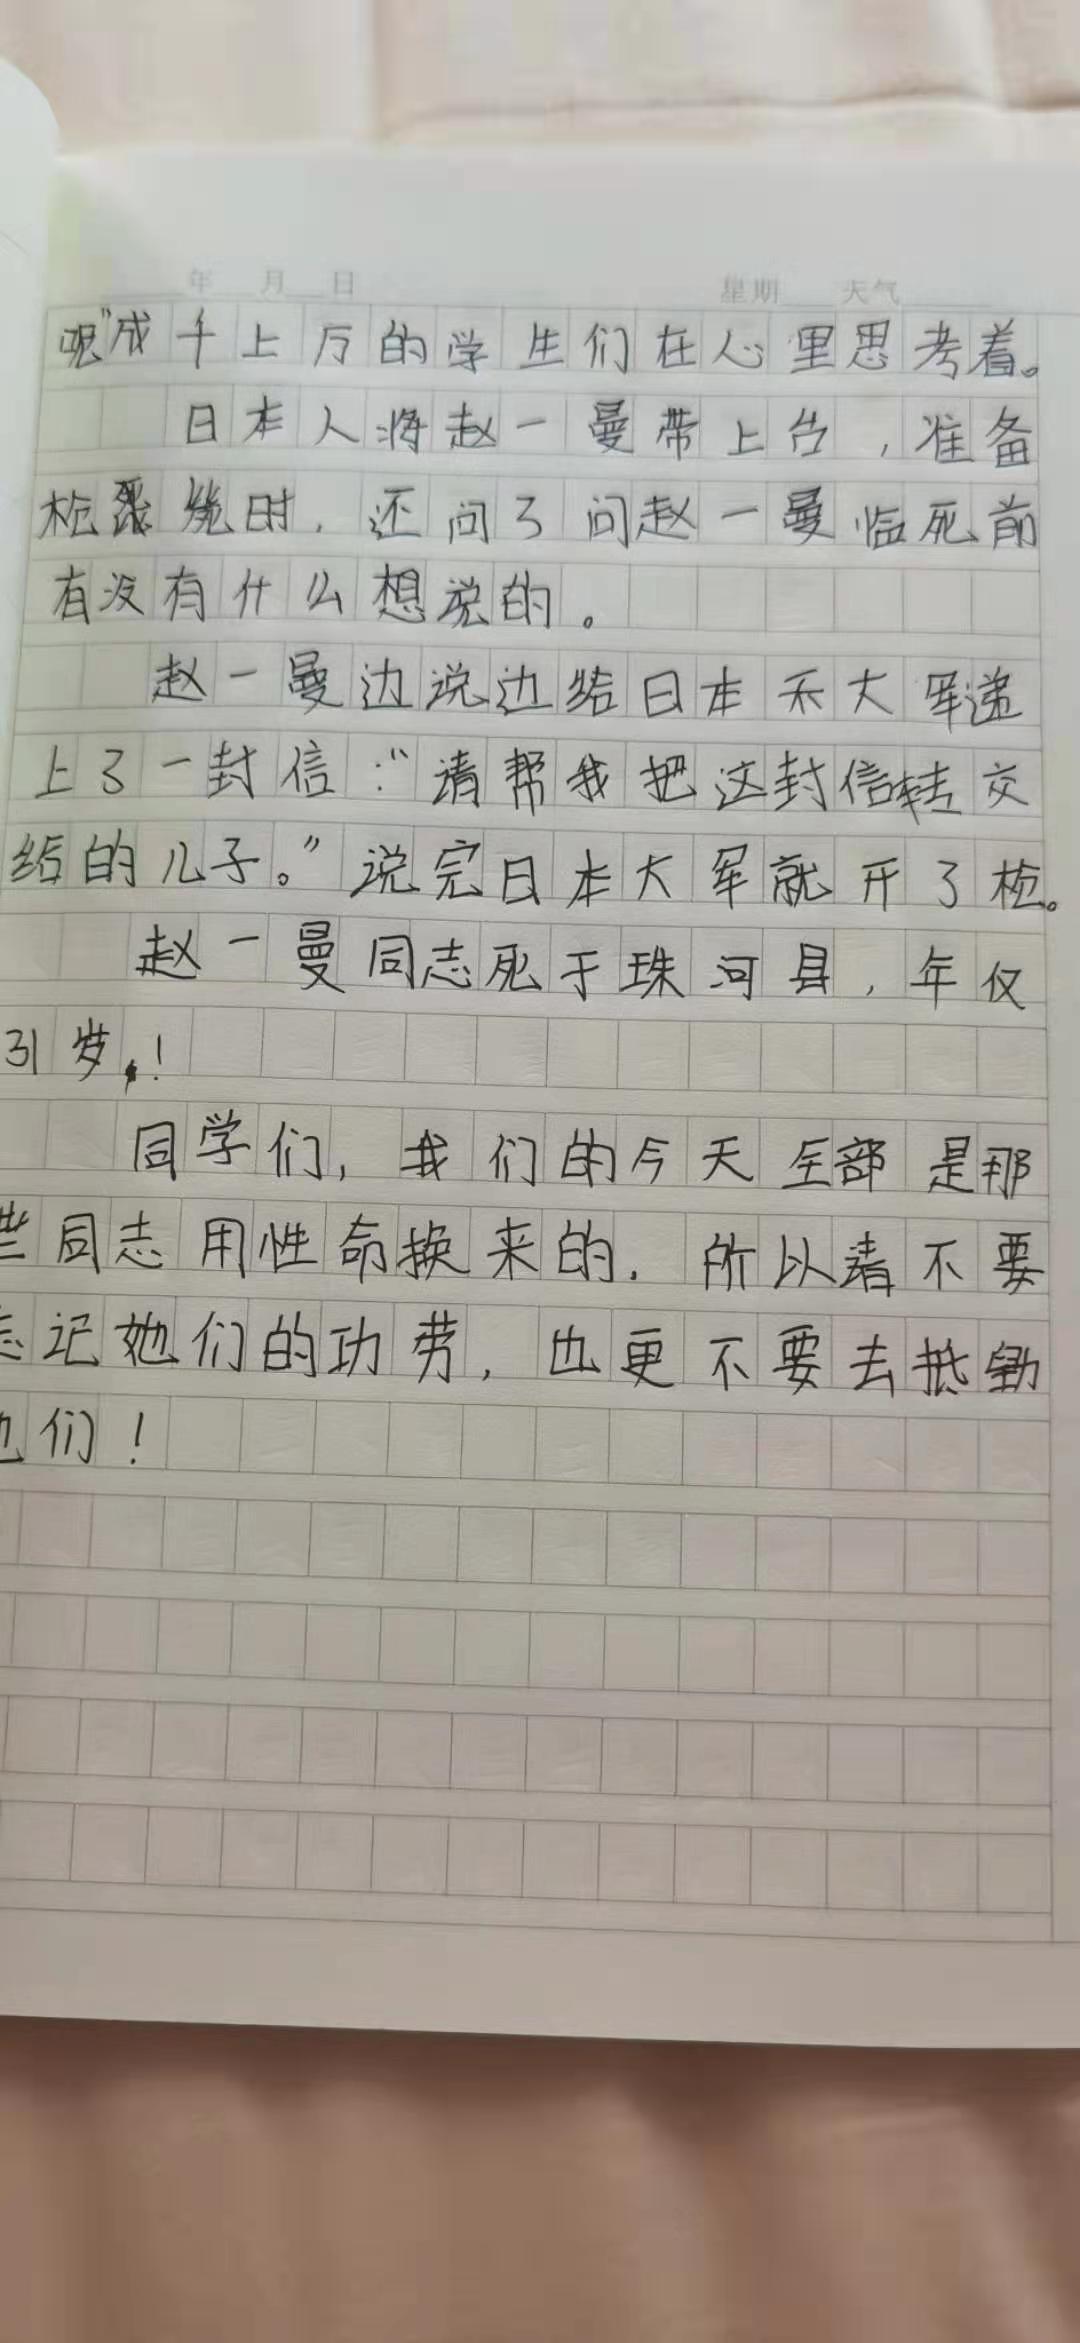 年 月 日 星期 天气
呢”成千上万的学生们在心里思考着。
日本人将赵一曼带上台，准备
枪毙时，还问了问赵一曼临死前
有没有什么想说的。
赵一曼边说边给日本大军递
上了一封信：“请帮我把这封信转交
给的儿子。”说完日本大军就开了枪。
赵一曼同志死于珠河县，年仅
31岁！
同学们，我们的今天全部是那
些同志用性命换来的．所以请不要
忘记她们的功劳，也更不要去
他们！